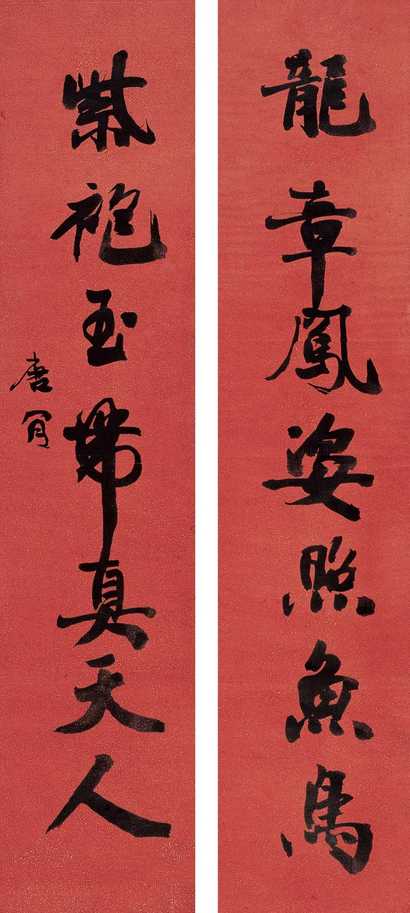 龍章鳳姿照魚鳥
紫袍玉帶真天人
唐肯